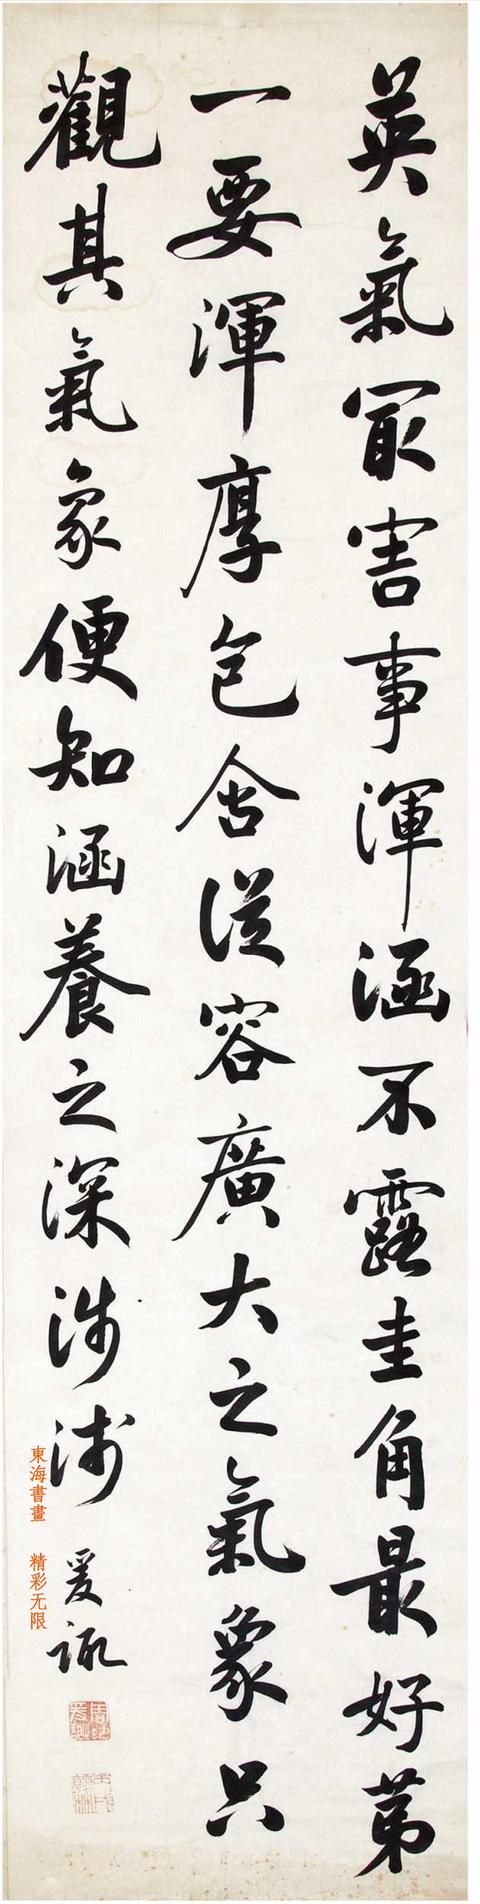 英氣冣害事渾涵不露圭角最好苐
一要渾厚包含從容廣大之氣象只
觀其氣象便知涵養之深淺
爰諏
東海書畫 精彩无限